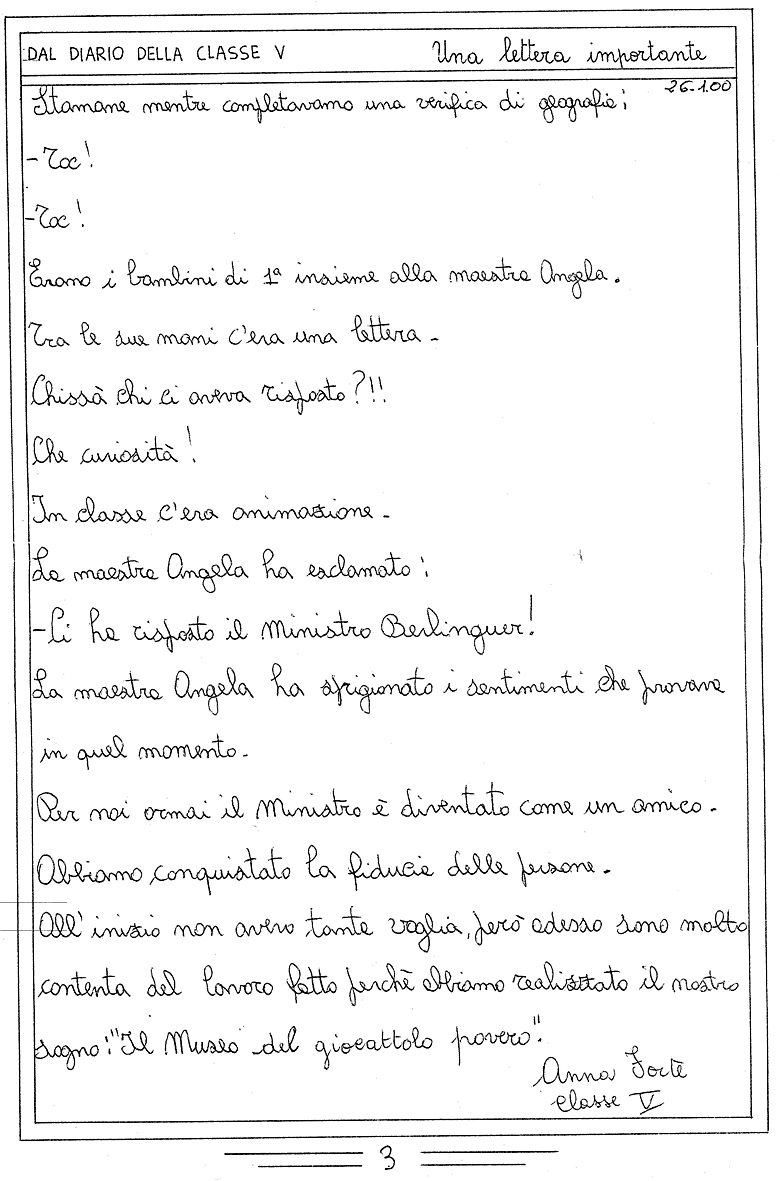 DAL DIARIO DELLA CLASSE V Una lettera importante
26.1.00
Stamane mentre completavamo una verifica di geografia:
-Toc!
-Toc!
Erano i bambini di 1ª insieme alla maestra Angela.
Tra le sue mani c'era una lettera.
Chissà chi ci aveva risposto?!!
Che curiosità!
In classe c'era animazione.
La maestra Angela ha esclamato:
-Ci ha risposto il Ministro Berlinguer!
La maestra Angela ha sprigionato i sentimenti che provava
in quel momento.
Per noi ormai il Ministro è diventato come un amico.
Abbiamo conquistato la fiducia delle persone.
All'inizio non avevo tanta voglia, però adesso sono molto
contenta del lavoro fatto perchè abbiamo realizzato il nostro
sogno: "Il Museo del giocattolo povero".
Anna Forte
classe V
3